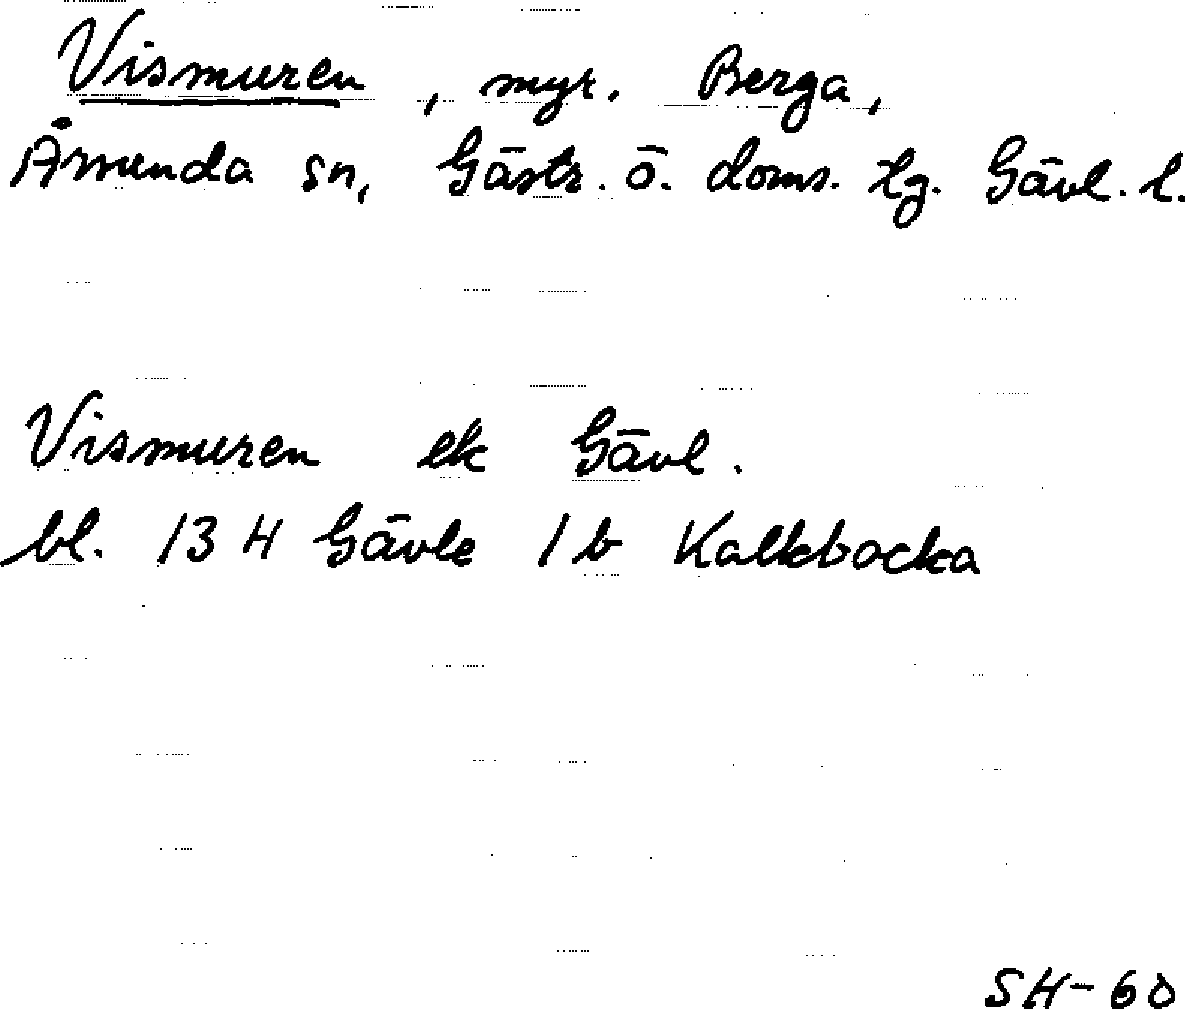 Vismuren, myr. Berga,
Årsunda sn, Gästr. ö. doms. tg. Gävl. l.
Vismuren ek Gävl.
bl. 13 H Gävle 1 b Kalkbacka
SH-60